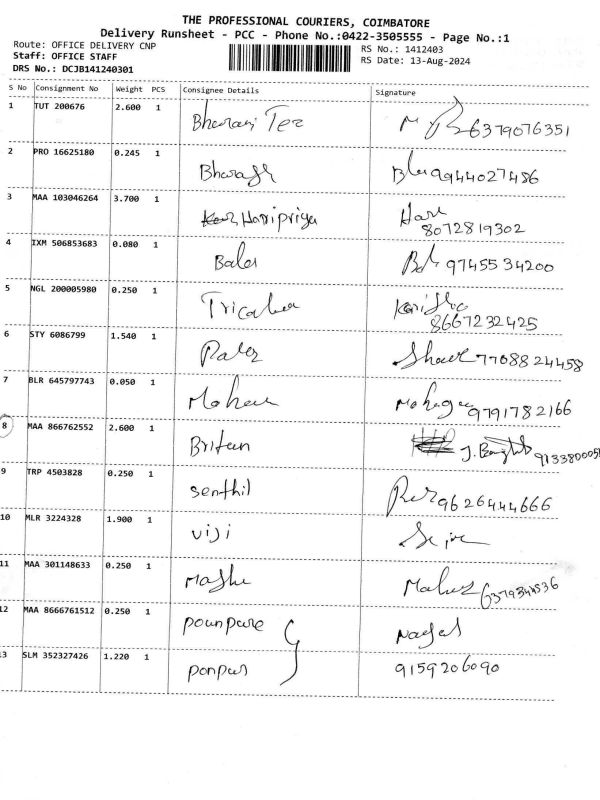 THE PROFESSIONAL COURIERS, COIMBATORE
Delivery Runsheet - PCC - Phone No.:0422-3505555 - Page No.:1
Route: OFFICE DELIVERY CNP RS No.: 1412403
Staff: OFFICE STAFF RS Date: 13-Aug-2024
DRS No.: DCJB141240301
S No Consignment No Weight PCS Consignee Details Signature
1 TUT 200676 2.600 1 6379076351
2 PRO 16625180 0.245 1 9944027486
3 MAA 103046264 3.700 1 Haripriya Hari
8072819302
4 IXM 506853683 0.080 1 97455 34200
5 NGL 200005980 0.250 1
8667232425
6 STY 6086799 1.540 1 77088 24458
7 BLR 645797743 0.050 1 Mohan 9791782166
8 MAA 866762552 2.600 1
9 TRP 4503828 0.250 1 senthil 9626444666
10 MLR 3224328 1.900 1 viji
11 MAA 301148633 0.250 1
12 MAA 8666761512 0.250 1 pounpure
13 SLM 352327426 1.220 1 9159206090